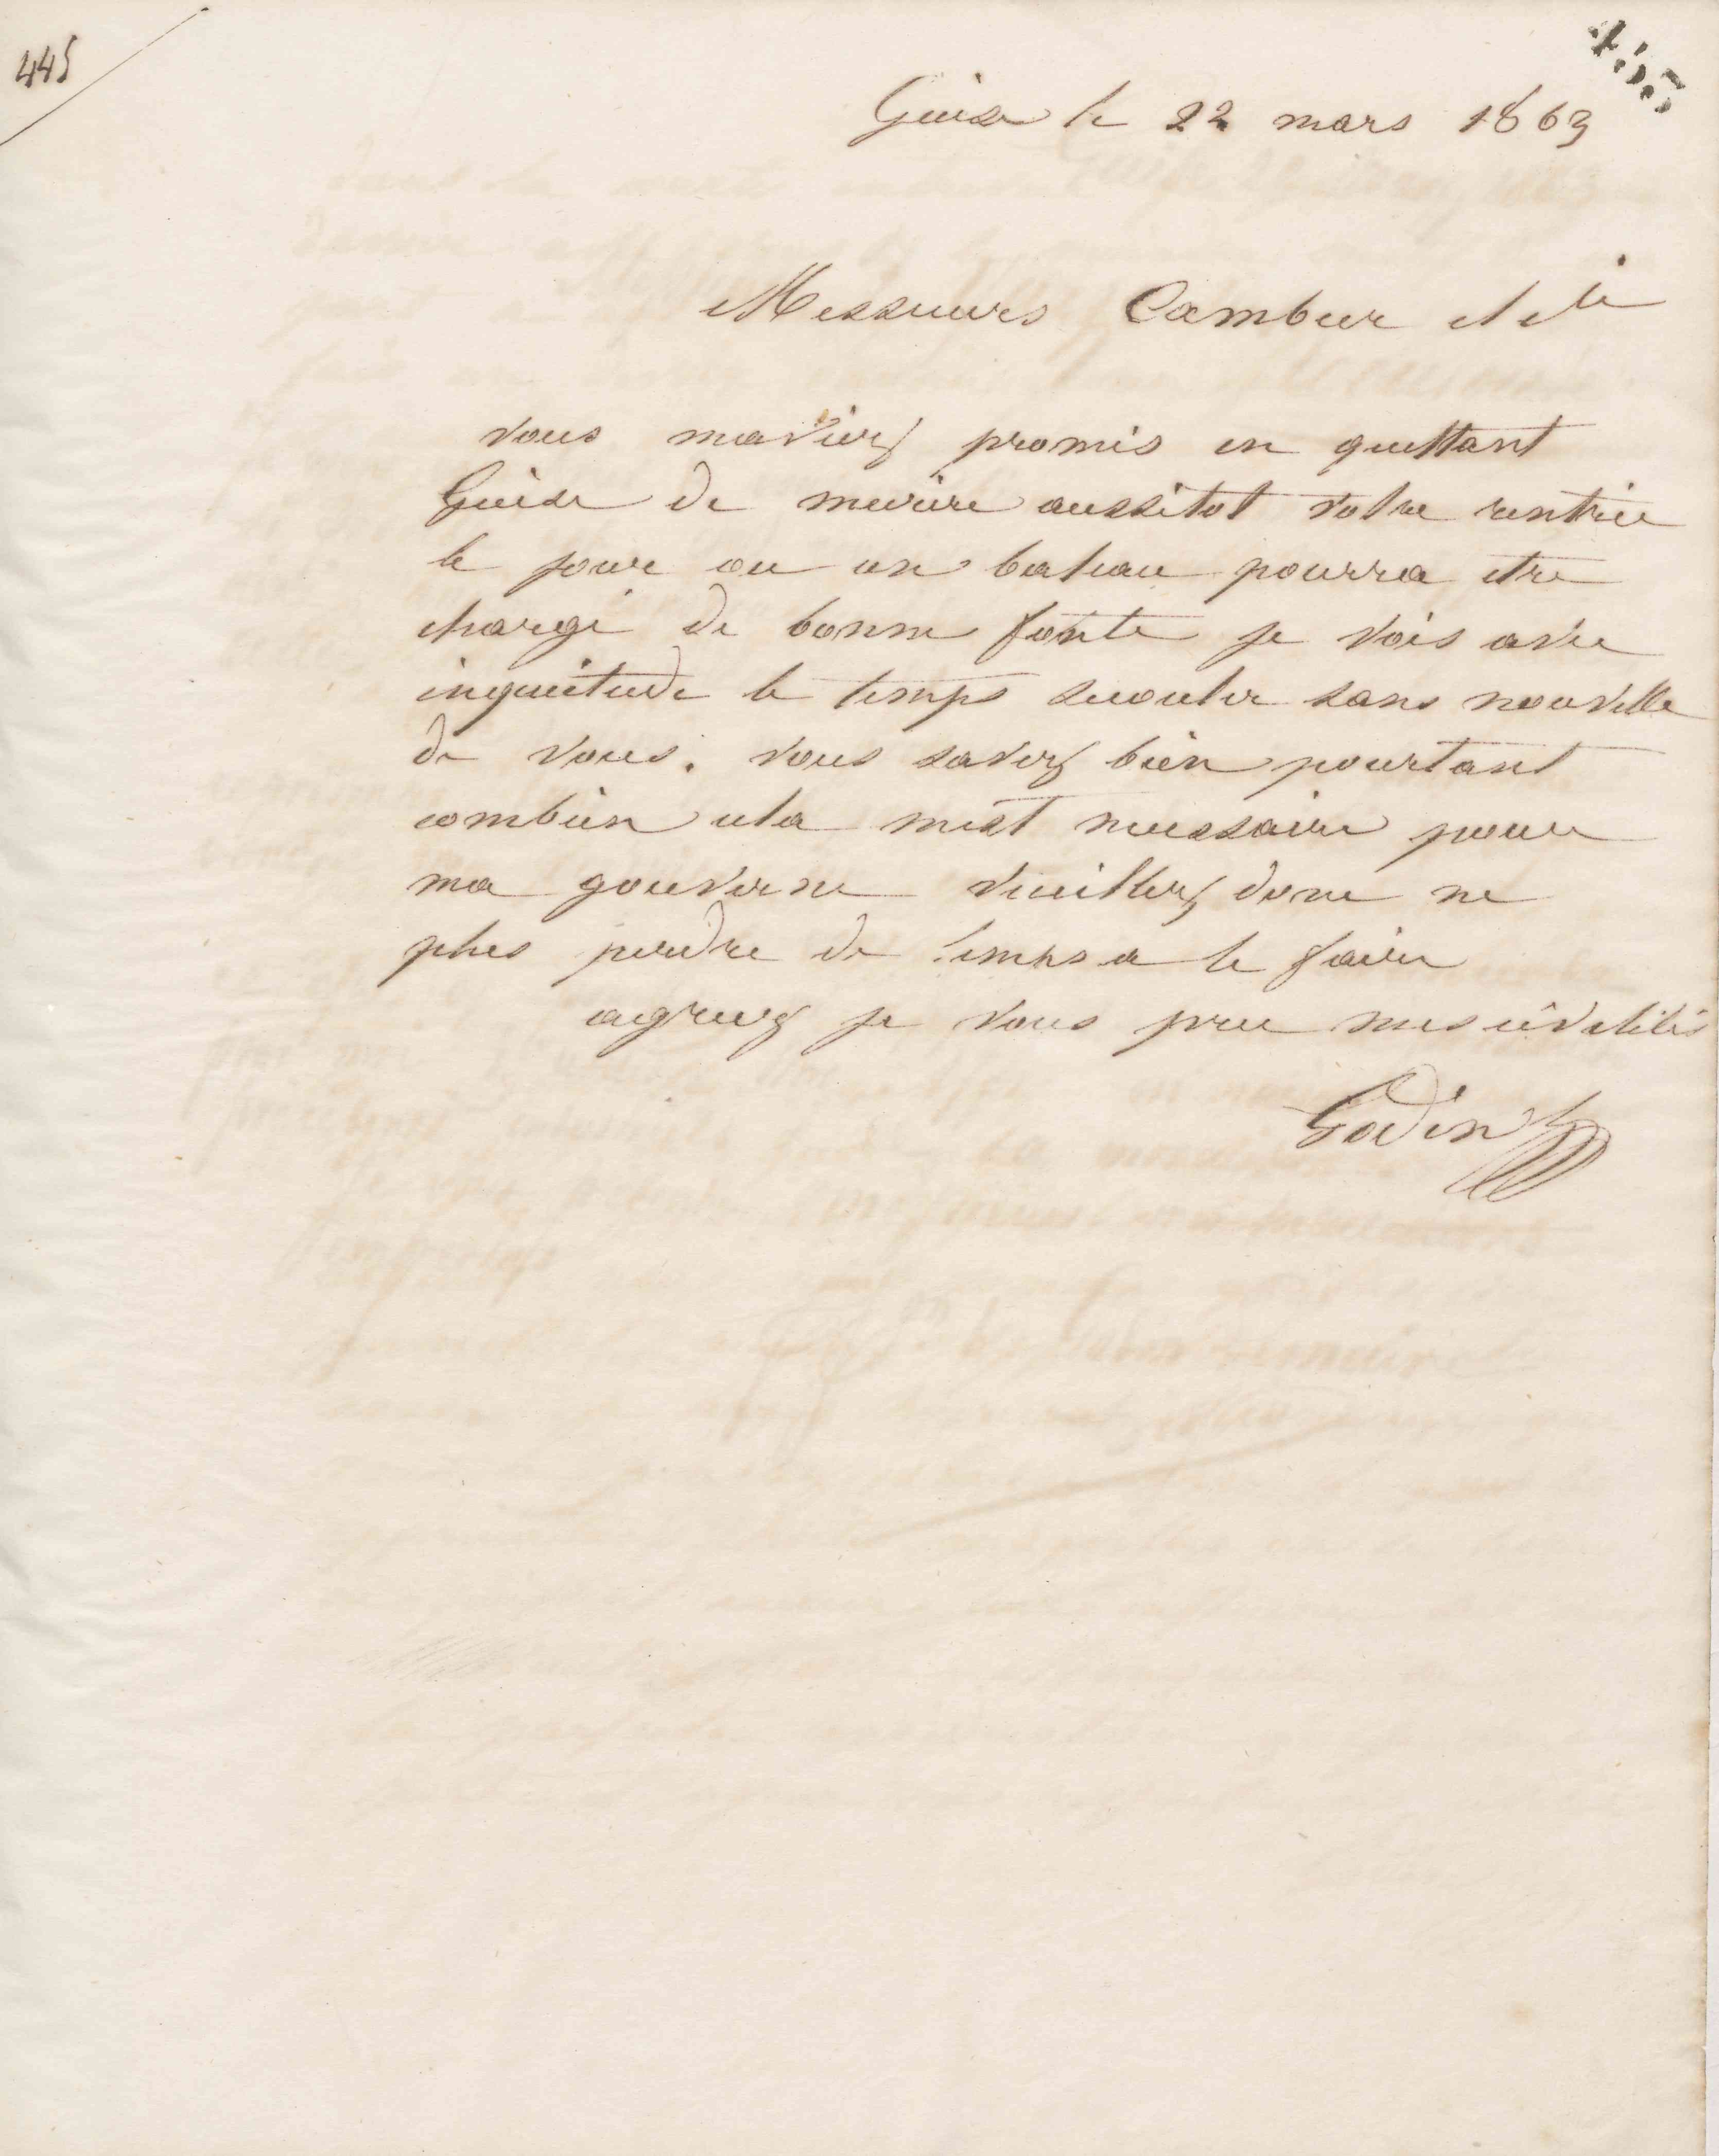 445
455
Guise le 22 mars 1863
Messieurs Cambier et Cie
vous maviez promis en quittant
Guise de mecrire aussitot votre rentrée
le jour ou un bateau pourra etre
chargé de bonne fonte je vois avec
inquietude le temps secouler sans nouvelle
de vous. vous savez bien pourtant
combien cela mest necessaire pour
ma gouverne veuillez donc ne
plus perdre de temps a le faire
agreez je vous prie mes civilités
Godin